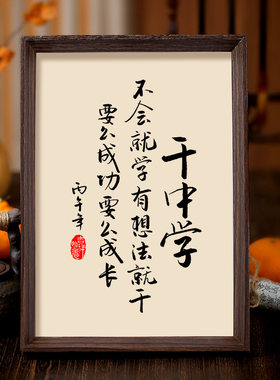 干中学
不会就学有想法就干
要么成功要么成长
丙午年